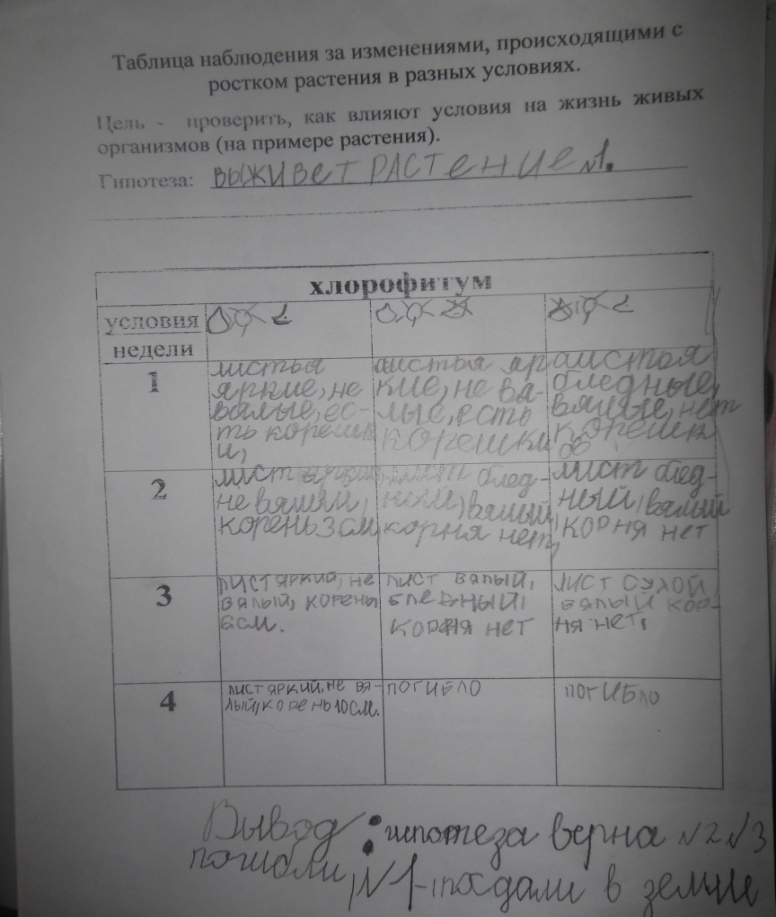 Таблица наблюдения за изменениями, происходящими с
ростком растения в разных условиях.
Цель - проверить, как влияют условия на жизнь живых
организмов (на примере растения).
Гипотеза: ВЫЖИВЕТ РАСТЕНИЕ №1.
хлорофитум
условия
недели
1
листья
яркие, не
вялые, ес-
ть корешк
и,
листья яр
кие, не вя-
лые, есть
корешки
листья
бледные,
вялые, нет
корешк
ов
2
лист яркий,
не вялый,
корень 3 см,
лист блед-
ный, вялый,
корня нет,
лист блед-
ный, вялый
корня нет
3
лист яркий, не
вялый, корень
6см.
лист вялый,
бледный,
корня нет
лист сухой,
вялый кор-
ня нет,
4
лист яркий, не вя-
лый, корень 10см.
ПОГИБЛО
ПОГИБЛО
Вывод: гипотеза верна №2 №3
погибли, №1-посадали в землю